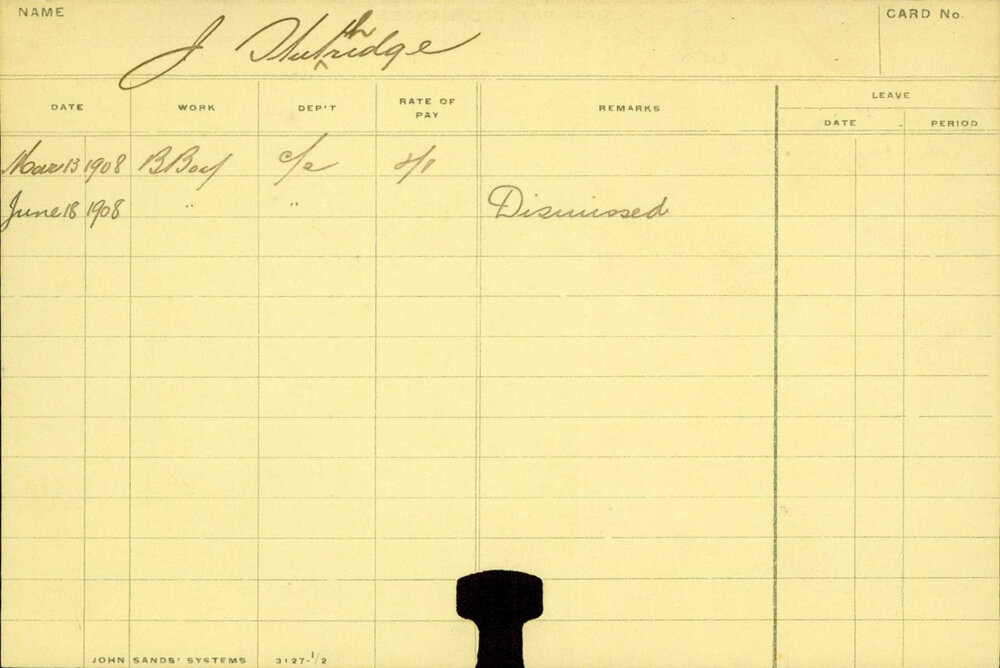 NAME
J
CARD No.
DATE WORK DEP'T RATE OF PAY REMARKS LEAVE
DATE PERIOD
Mar 13 1908 B Boy
June 18 1908 " " Dismissed
JOHN SANDS' SYSTEMS 3127-1/2